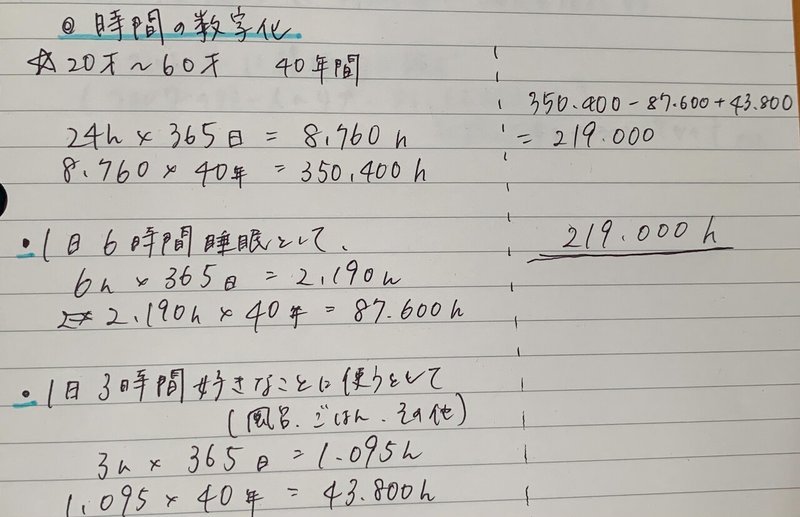 ◎ 時間の数字化
☆ 20才～60才 40年間
24h × 365日 = 8,760 h
8,760 × 40年 = 350,400 h
・1日 6時間睡眠として、
6h × 365日 = 2,190h
2,190h × 40年 = 87.600h
・1日 3時間 好きなことに使うとして
(風呂、ごはん、その他)
3h × 365日 = 1.095h
1,095 × 40年 = 43.800h
350.400 - 87.600 + 43.800
= 219.000
219.000 h